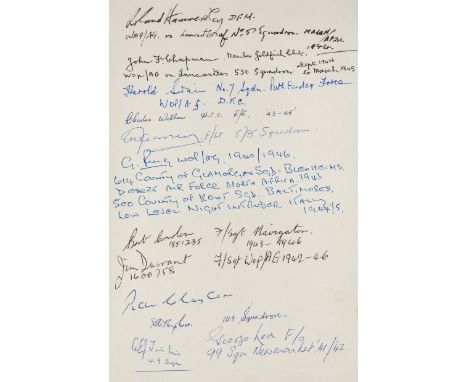 Roland Hammersley D.F.M.
WOP/AG. on Lancasters of No 57 Squadron. March/April 1944.
John F Chapman, Member Goldfish Club.
WOP/AG on Lancasters 550 Squadron Sept 1944 to March 1945
Harold Swain No 7 Sqdn. Path Finder Force
WOP/A.G. D.F.C.
Charles F/S. '43-45'
F/Lt 5/8 Squadron
G. WOP/AG. 1940/1946.
614 County of Glamorgan Sqd. Blenheims.
Desert Air Force North Africa 1943
500 County of Kent Sqd. Baltimores.
Low Level Night Intruder Italy 1944/5.
Bert 1851235 F/Sgt Navigator. 1943-1946
Jim Durrant 1600758 F/Sgt WOP/AG 1942-46
Squadron
49 Sqn
George Lea F/O
99 Sqn Newmarket '41/42